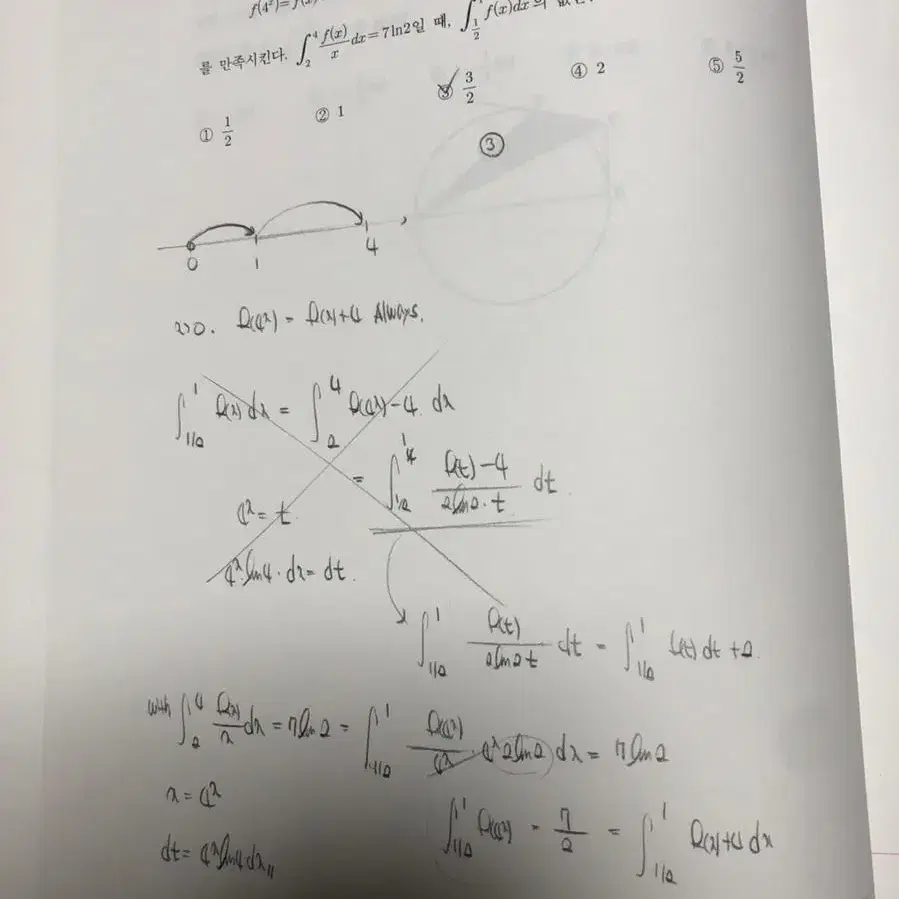 f(4ˣ)=f(x)
를 만족시킨다. ∫₂⁴ f(x)/x dx=7ln2일 때, ∫_{1/2}^{1} f(x)dx의 값은?
① 1/2 ② 1 ③ 3/2 ④ 2 ⑤ 5/2
③
0 1 4
x>0. f(4ˣ) = f(x)+4 Always.
∫_{1/2}^{1} f(x) dx = ∫_{2}^{4} f(4ˣ)-4 dx
= ∫_{1/2}^{1} (f(t)-4)/(2ln2·t) dt
4ˣ = t
4ˣ ln4 · dx = dt.
∫_{1/2}^{1} f(t)/(2ln2t) dt = ∫_{1/2}^{1} f(t) dt + 2
with ∫_{2}^{4} f(x)/x dx = 7ln2 = ∫_{1/2}^{1} f(4ˣ)/4ˣ · 4ˣ 2ln2 dx = 7ln2
x = 4ˣ
dt = 4ˣ ln4 dx
∫_{1/2}^{1} f(4ˣ) = 7/2 = ∫_{1/2}^{1} f(x)+4 dx